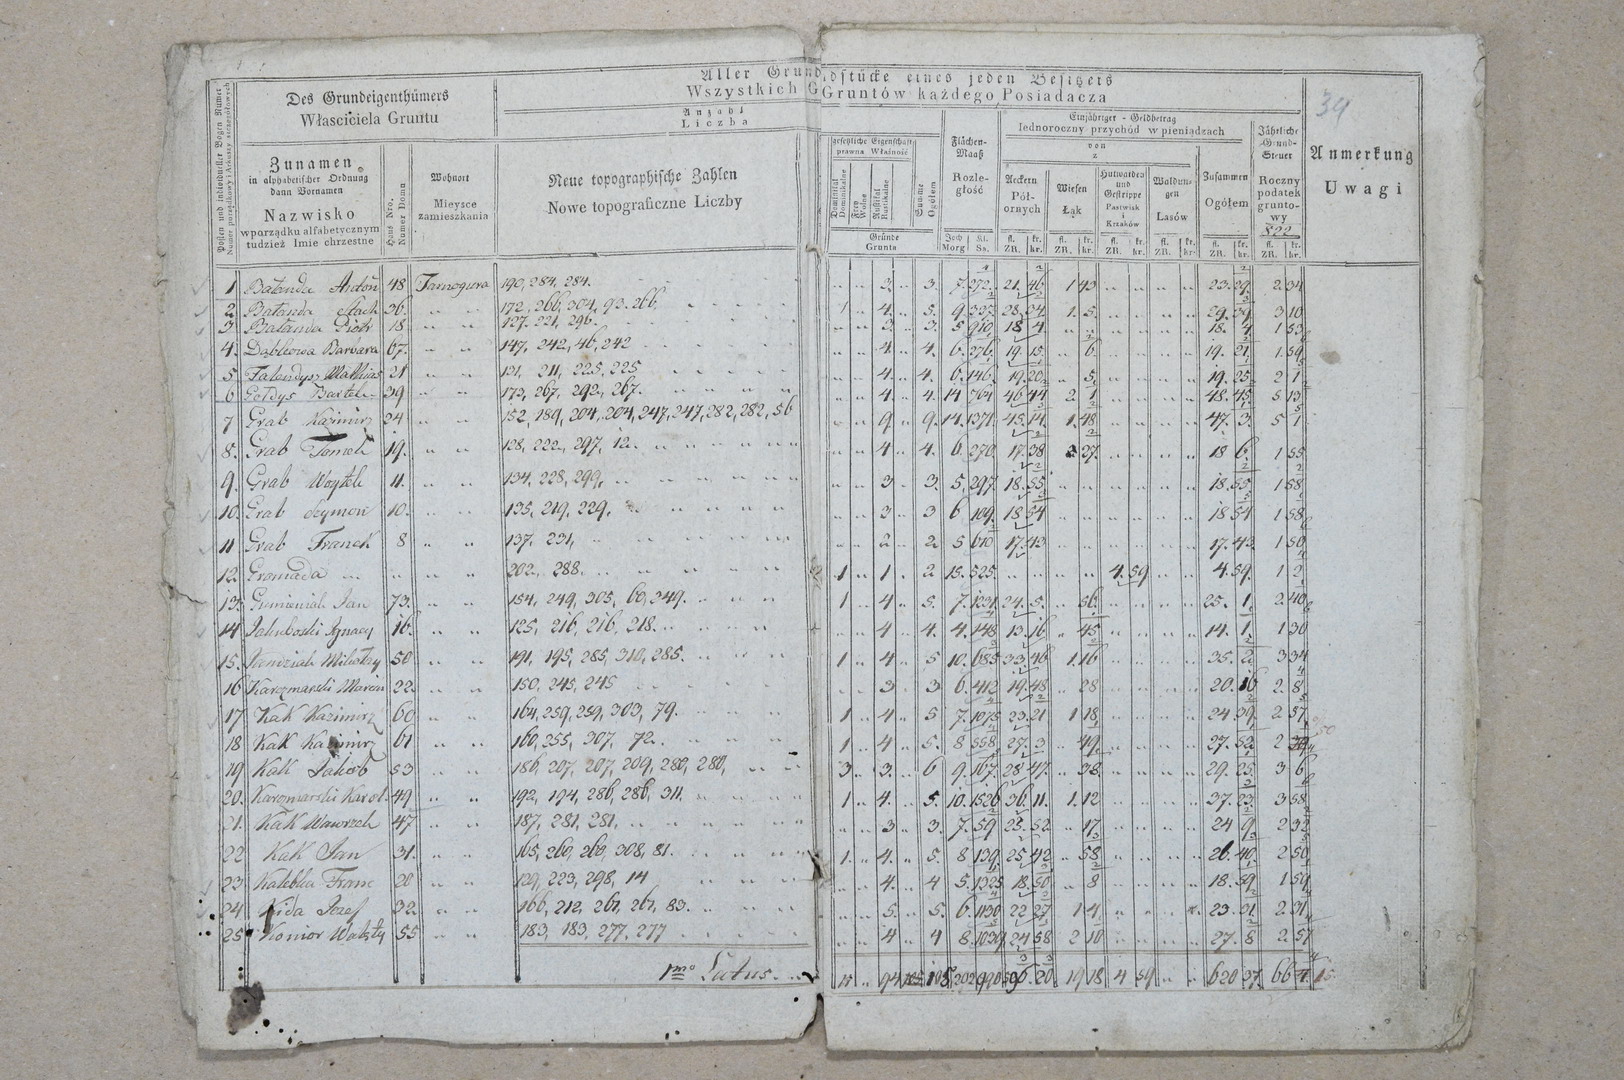 Aller Grundstücke eines jeden Besitzers
Wszystkich Gruntów każdego Posiadacza
39
Des Grundeigenthümers
Właściciela Gruntu
Anzahl
Liczba
Einjähriger - Geldbetrag
Iednoroczny przychód w pieniądzach
von
z
Jährliche Grund-Steuer
Roczny podatek gruntowy
822
Anmerkung
Uwagi
Posten und individueller Bogen Numer
Numer porządkowy i Arkuszy szczegółowych
Zunamen
in alphabetischer Ordnung
dann Vornamen
Nazwisko
w porządku alfabetycznym
tudzież Imie chrzestne
Haus Nro.
Numer Domu
Wohnort
Mieysce
zamieszkania
Neue topographische Zahlen
Nowe topograficzne Liczby
gesetzliche Eigenschaft
prawna Własność
Dominikal
Dominikalne
Frey
Wolne
Rustikal
Rustikalne
Summe
Ogółem
Gründe
Grunta
Flächen-Maaß
Rozległość
Joch Kl.
Morg Ss.
Aeckern
Pól-ornych
Wiesen
Łąk
Hutwaiden und Gestrippe
Pastwisk i Krzaków
Waldungen
Lasów
Zusammen
Ogółem
fl. kr.
ZR. kr.
1 Bałanda Antoń 48 Tarnogura 190, 284, 284. 3. 3. 7. 272. 21. 46 1 43 23. 29. 2 34
2 Bałanda Stach 36. 172, 266, 304, 93. 266 1 4. 5. 9. 337. 28. 34 1. 5. 29. 39 3 10
3 Bałanda Piotr 18 127. 221, 296. 3 3. 5. 910. 18 4 18. 4. 1 53
4. Barbara 67. 147, 242, 46, 242 4. 4. 6. 276. 19. 15 6. 19. 21 1. 59
5 Mathias 21 121, 211, 225, 225 4 4. 6. 146 19. 20 5. 19. 25 2 1
6 Gołdys Bartek 39 173, 267, 292, 267. 4 4. 14 764 46 44 2 1 48. 45 5 13
7 Grab Kaźmirz 24 152, 189, 204, 204, 247, 247, 282, 282, 56 9 9. 14. 1371. 45. 14. 1. 48 47. 3. 5 1
8. Grab Tomek 19. 128, 222, 297, 12. 4 4. 6. 270. 17. 38 27. 18 6. 1 55
9. Grab Woytek 11. 134, 228, 299, 3 3. 5. 297 18. 55 18. 55 1 58
10. Grab Szymon 10. 135, 219, 229. 3 3 6 109. 18 54 18 54 1 58
11 Grab Franek 8 137, 231, 2 2 5 610 17. 43 17. 43 1 50
12. Gromada 202, 288. 1 1 2 15. 525. 4. 59 4. 59. 1 2
13. Jan 73. 154, 249, 305, 60, 249. 1 4 5. 7. 1231 24. 5. 56. 25. 1. 2. 40
14 Jakuboski Ignacy 16. 125, 216, 216, 218. 4 4. 4. 148 13. 16 45 14. 1. 1 30
15. 50 191, 195, 285, 310, 285. 1 4 5 10. 685 33. 46 1. 16 35. 2. 3 34
16 Karczmarski Marcin 22 150, 245, 245 3 3 6. 412 19. 48 28 20. 16 2. 8
17 Kak Kazimirz 60 164, 259, 259, 303, 79. 1 4 5 7. 1075 23. 21 1 18 24 39 2. 57
18 Kak Kazimirz 61 160, 255, 307, 72. 1 4 5. 8 558 27. 3 49 27. 52 2 50
19 Kak Jakob 53 186, 207, 207, 209, 280, 280, 3 3. 6 9. 167. 28 47. 38. 29. 25. 3 6
20. Karczmarski Karol. 49 192, 194, 286, 286, 311. 1 4. 5. 10. 1526 36. 11. 1. 12 37. 23. 3 58
21. Kak Wawrzek 47 187, 281, 281, 3 3. 7. 59 23. 52 17 24 9 2 32
22 Kak Jan 31. 165, 260, 260, 308, 81. 1. 4. 5. 8 139 25 42 58 26. 40 2 50
23 Franc 20 129, 223, 298, 14 4. 4 5. 1325 18. 50 8 18. 59 1 59
24 Kida Jozef 32. 166, 212, 267, 267, 83. 5. 5. 6. 1130 22 27 1 4. 23. 31 2. 31
25 Komor 55 183, 183, 277, 277 4 4 8. 1039 24 58 2 10 27. 8 2. 57
1mo Latus. 11 94 105 20 19 18 4 59 620 27. 66 4. 15